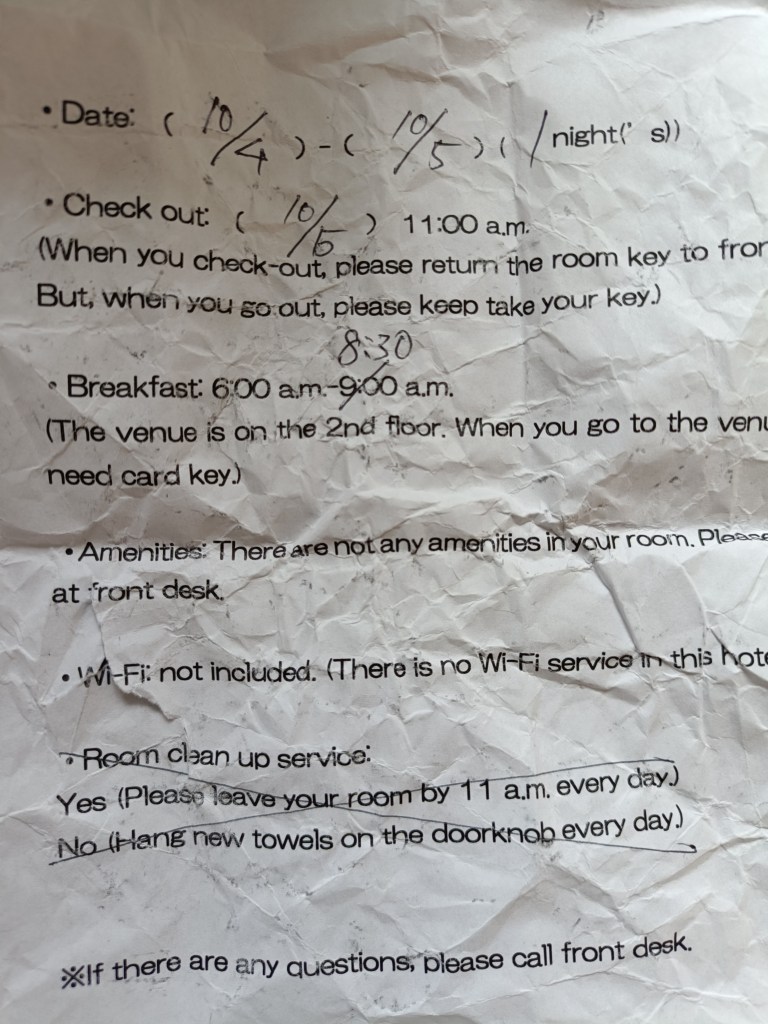 • Date: ( 10/4 ) - ( 10/5 ) ( 1 night(' s))
• Check out: ( 10/5 ) 11:00 a.m.
(When you check-out, please return the room key to fron
But, when you go out, please keep take your key.)
8:30
• Breakfast: 6:00 a.m.-9:00 a.m.
(The venue is on the 2nd floor. When you go to the venu
need card key.)
• Amenities: There are not any amenities in your room. Please
at front desk.
• Wi-Fi: not included. (There is no Wi-Fi service in this hote
• Room clean up service:
Yes (Please leave your room by 11 a.m. every day.)
No (Hang new towels on the doorknob every day.)
※If there are any questions, please call front desk.